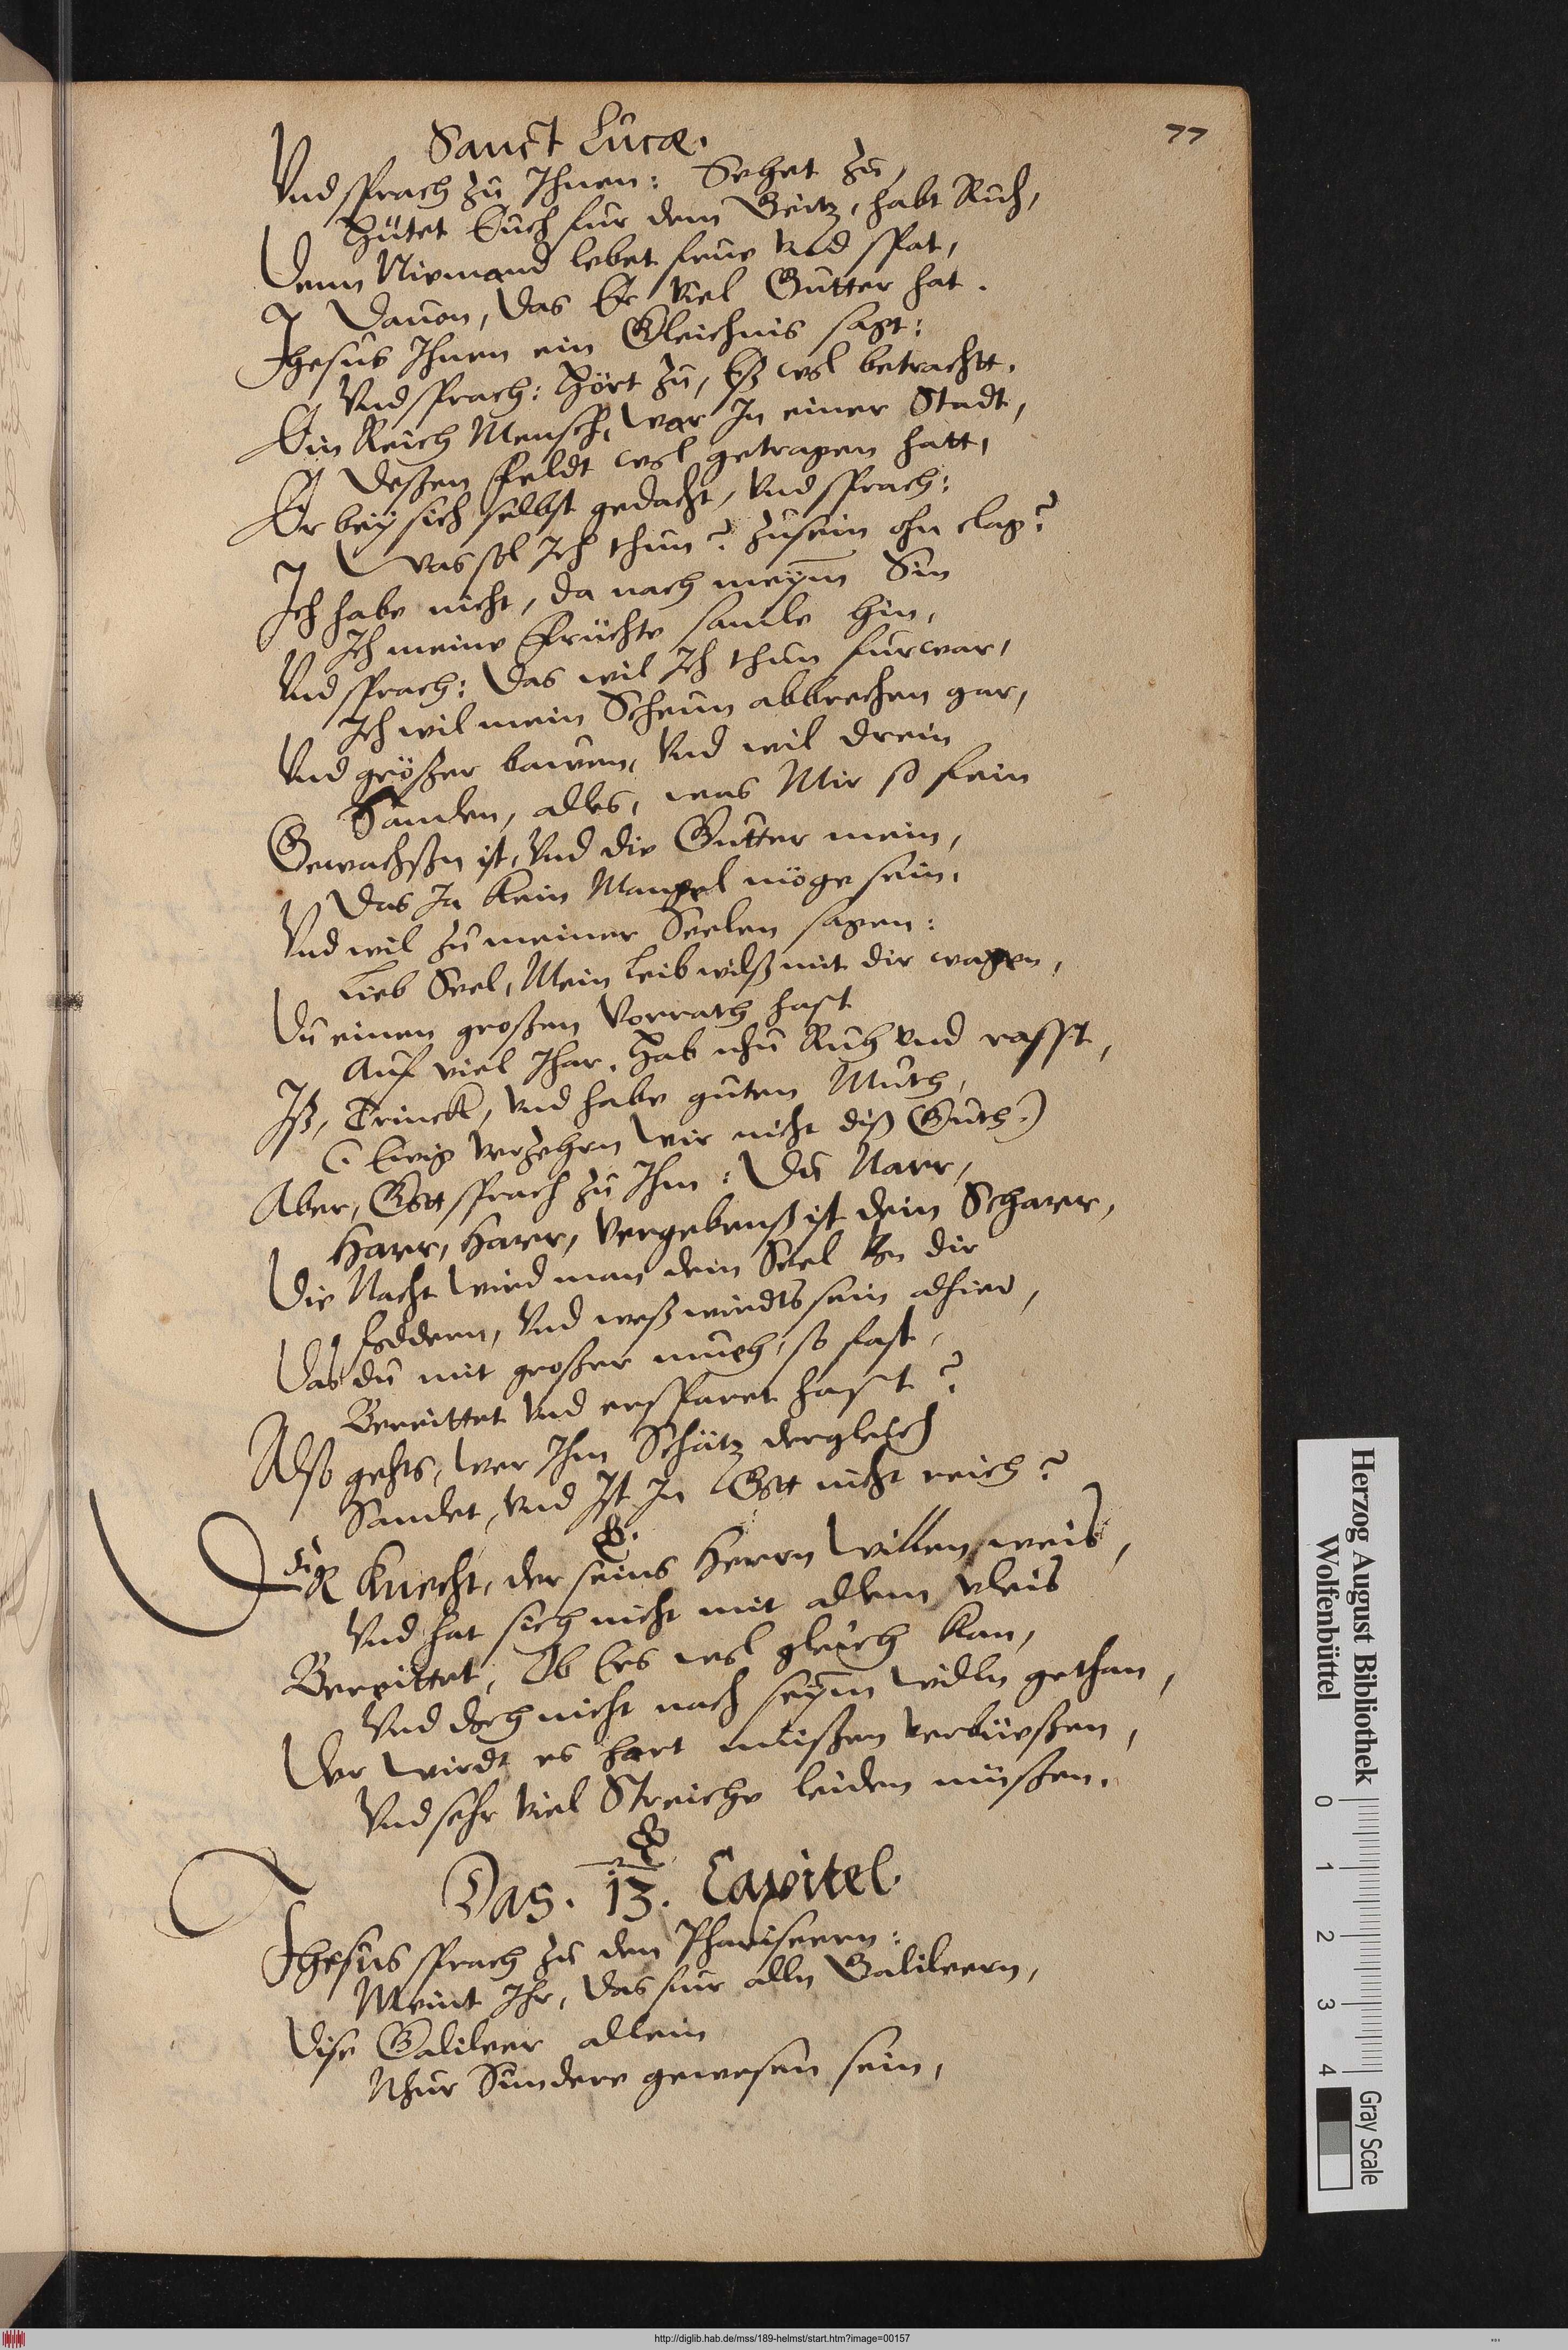 77
Sanct Lucæ.
Vnd sprach zu Ihnen: Sehet zu,
Hütet Euch fur dem Geitz, habt Ruh,
Denn Niemand lebet frue vnd spat,
Dauon, das Er viel Gutter hat.
Jhesus Ihnen ein Gleichnis sagt:
Vnd sprach: Hört zu, Eß wol betrachtt.
Ein Reich Mensch, war In einer Stadt,
Deßen Feldt wol getragen hatt,
Er beÿ sich selbst gedacht, vnd sprach:
Was sol Ich thun? zusein ohn clag?
Ich habe nicht, da nach meÿm Sin
Ich meine Früchte samle hin,
Vnd sprach: Das wil Ich thun furwar,
Ich wil mein Scheun abbrechen gar,
Vnd größer bawen, Vnd wil drein
Samlen, alles, was Mir so fein
Gewachßn ist, Vnd die Gutter mein,
Das Ja kein Mangel möge sein.
Vnd wil zu meiner Seelen sagen:
Lieb Seel, Mein Leib wilß mit dir wagen,
Du einen großen Vorrath hast
Auf viel Ihar. Hab nhu Ruh vnd rasst,
Iß, Trinck, vnd habe guten Muth,
(: Ewig verzehrn wir nicht diß Guth:)
Aber, Gott sprach zu Ihm: Du Narr,
Harr, Harr, Vergebenß ist dein Scharr,
Die Nacht wird man dein Seel von dir
Foddern, Vnd weß wirdts sein alhier,
Das du mit großer mueh, so fast,
Bereittet vnd ersparet hast?
Also gehts, wer Ihm Schätz dergleich
Samlet, vnd Ist In Gott nicht reich?
DER Knecht, der seins Herrn Willen weis,
Vnd hat sich nicht mit allem vleis
Bereittet, Ob Ers wol gleich kan,
Vnd doch nicht nach seÿm willn gethan,
Der wirdt es hart mußen verbüeßen,
Vnd sehr viel Streiche leiden müßen.
Das. 13. Capitel.
Jhesus sprach zu den Phariseern:
Meint Ihr, das fur alln Galileern,
Dise Galileer allein
Nhur Sundere gewesen sein,
Herzog August Bibliothek
Wolfenbüttel
0 1 2 3 4
Gray Scale
http://diglib.hab.de/mss/189-helmst/start.htm?image=00157